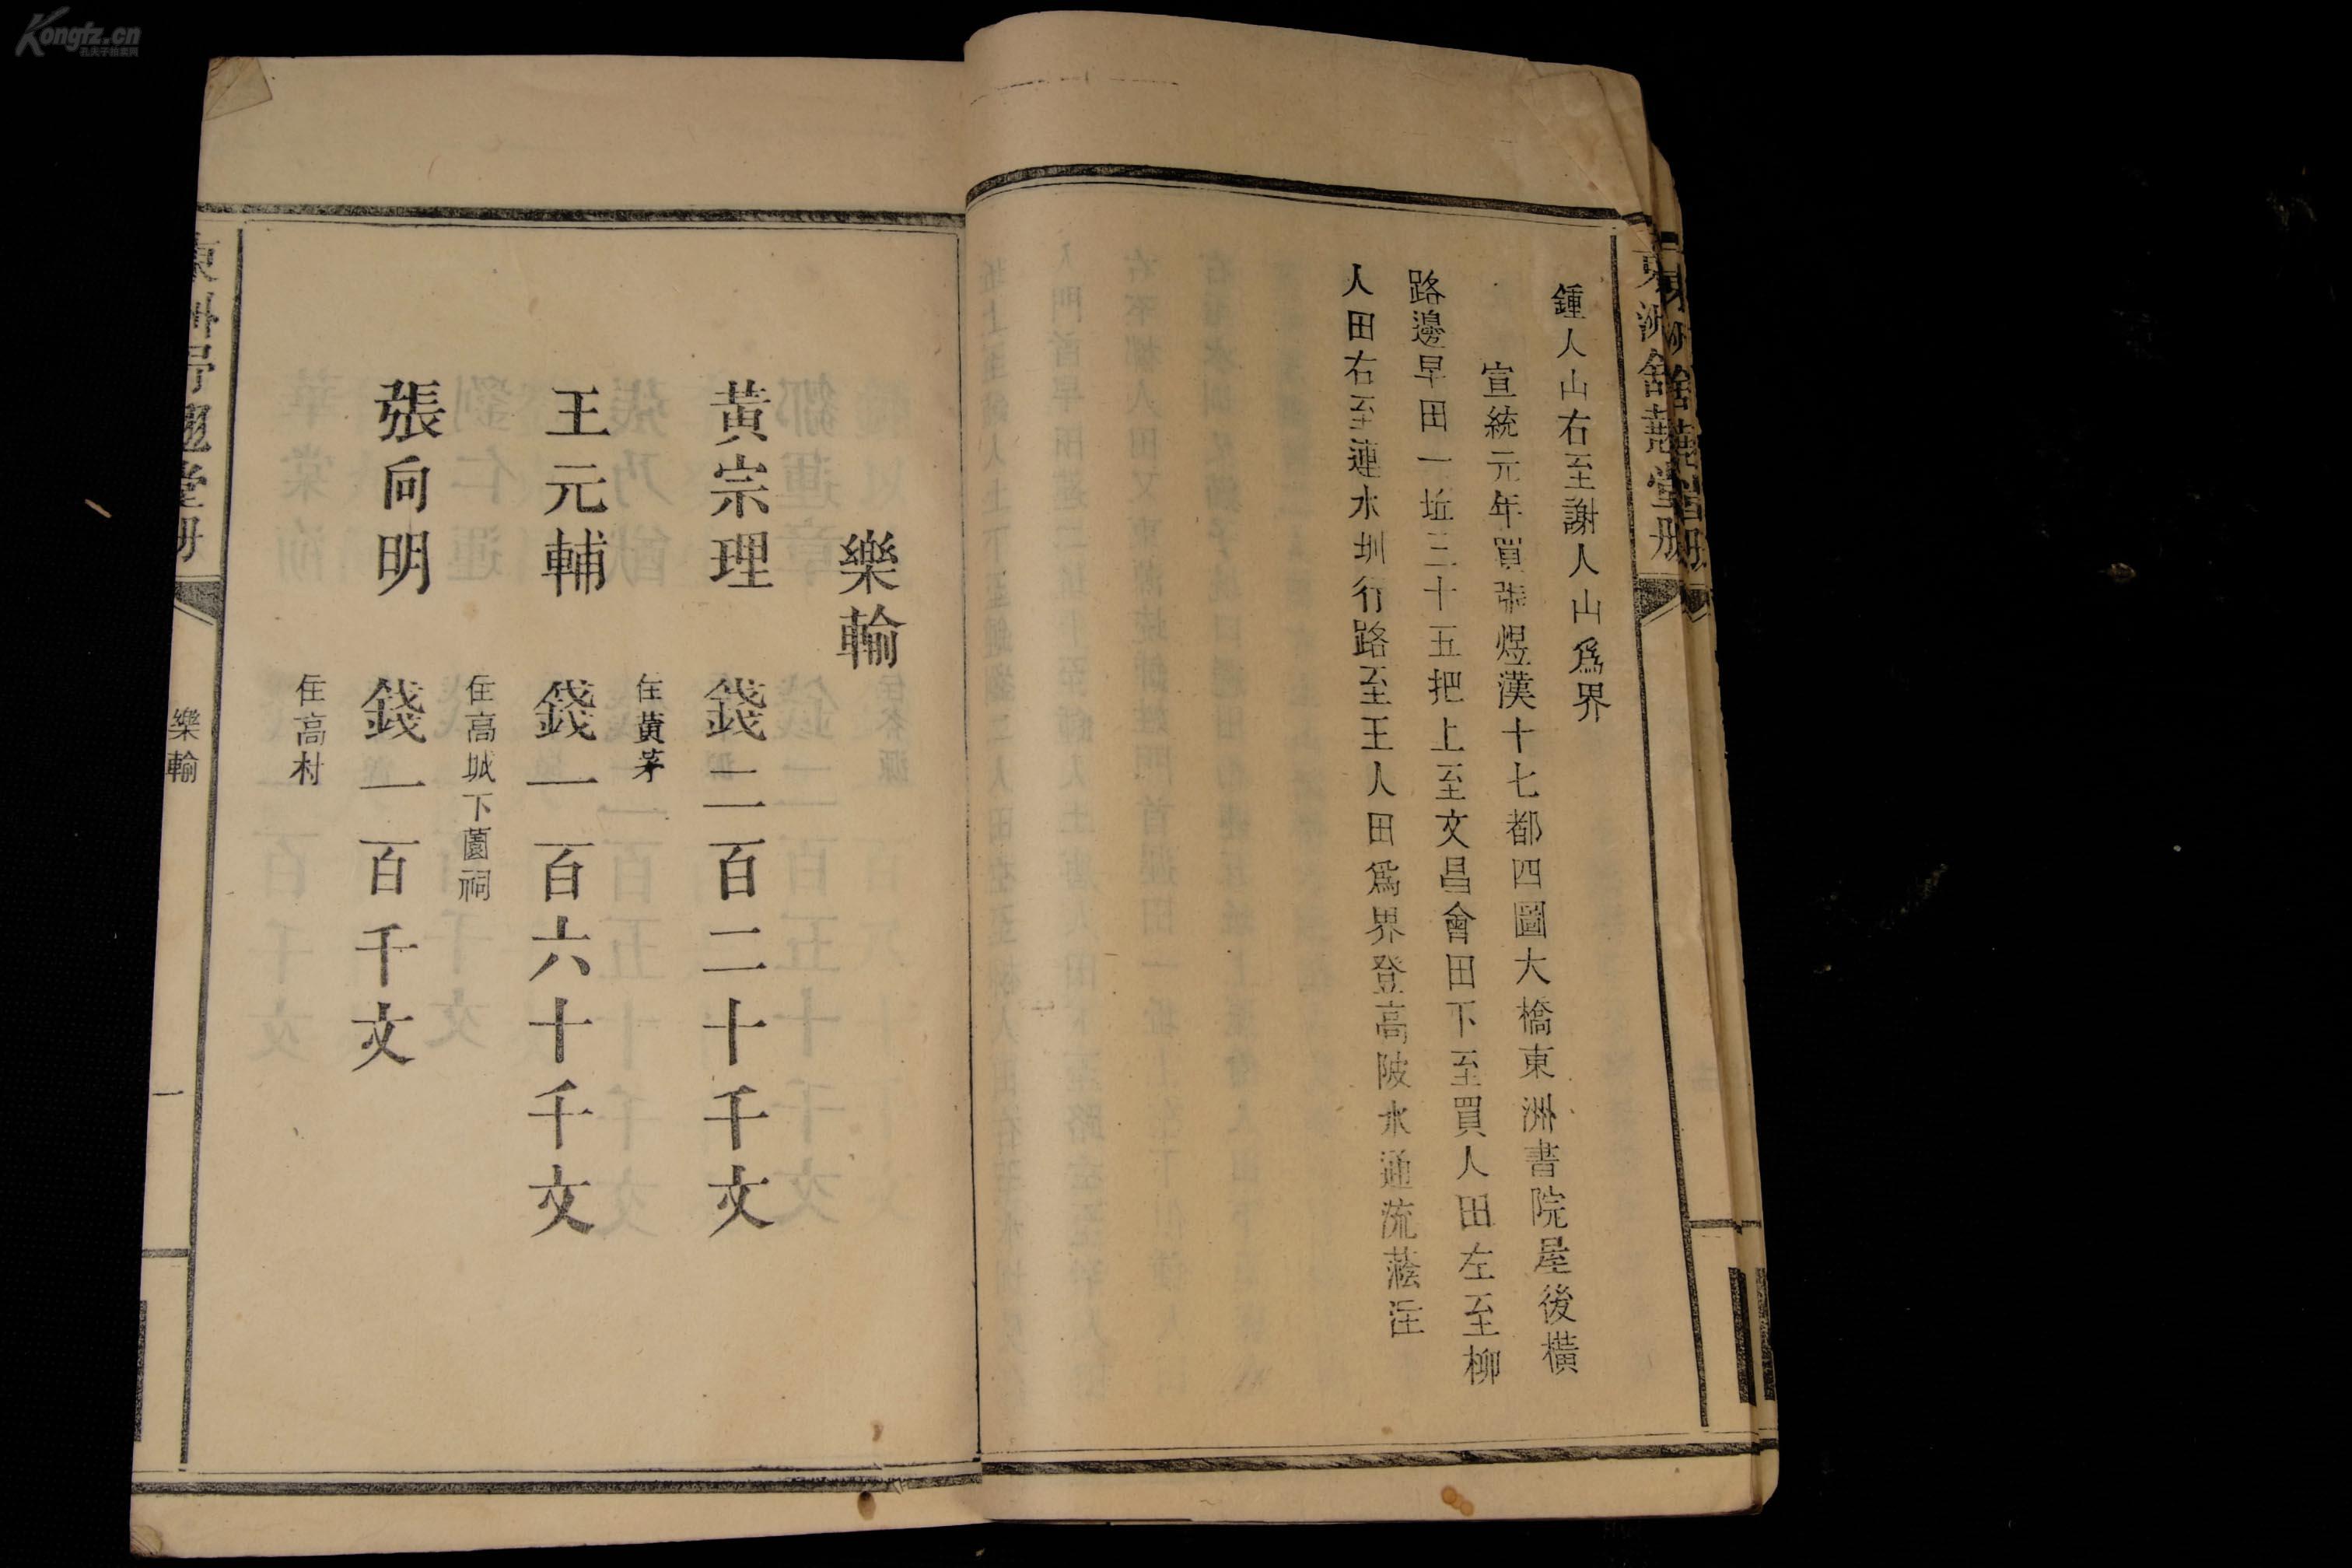 鍾人山右至謝人山爲界
宣統元年買張煜漢十七都四圖大橋東洲書院屋後橫
路邊早田一坵三十五把上至文昌會田下至買人田左至柳
人田右至連水圳行路至王人田爲界登高陂水通流蔭注
樂輸
黃宗理 錢二百二十千文
住黃茅
王元輔 錢一百六十千文
住高城下薗祠
張向明 錢一百千文
住高村
樂輸
一
Kongfz.cn
孔夫子拍卖网